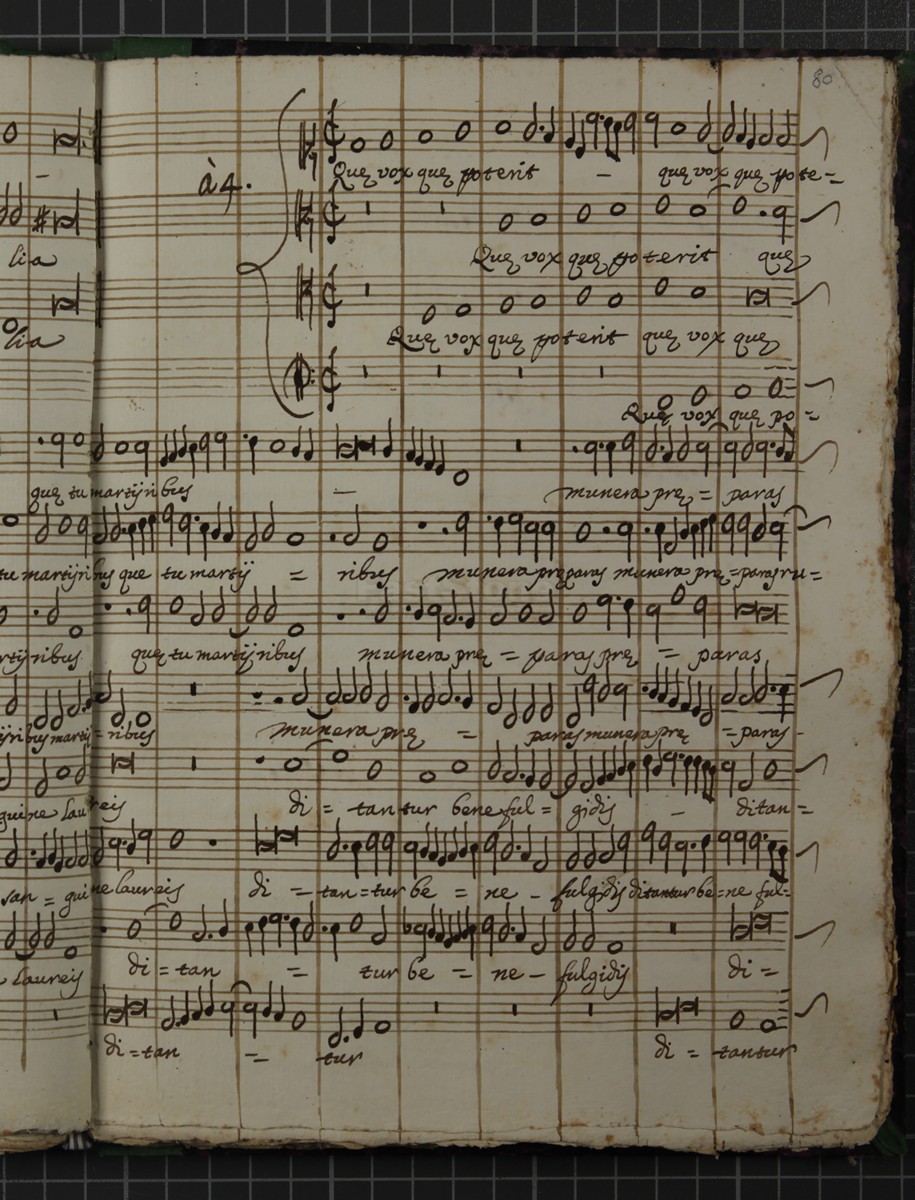 80
à 4.
Quę vox quę poterit — quę vox quę pote=
Quę vox quę poterit quę
lia
Quę vox quę poterit quę vox quę
lia
Quę vox quę po=
quę tu martyribus — munera prę = paras
tu martyribus que tu marty = ribus munera pręparas munera prę=paras ru=
rtyribus quę tu martyribus munera prę = paras prę = paras
yribus marti=ribus munera prę = paras munera prę = paras
guine laureis di = tantur bene ful = gidis — ditan=
san = guine laureis di = tan=tur be = ne - fulgidis ditantur be=ne ful=
laureis di = tan = tur be = ne - fulgidis di =
di=tan = tur di = tantur